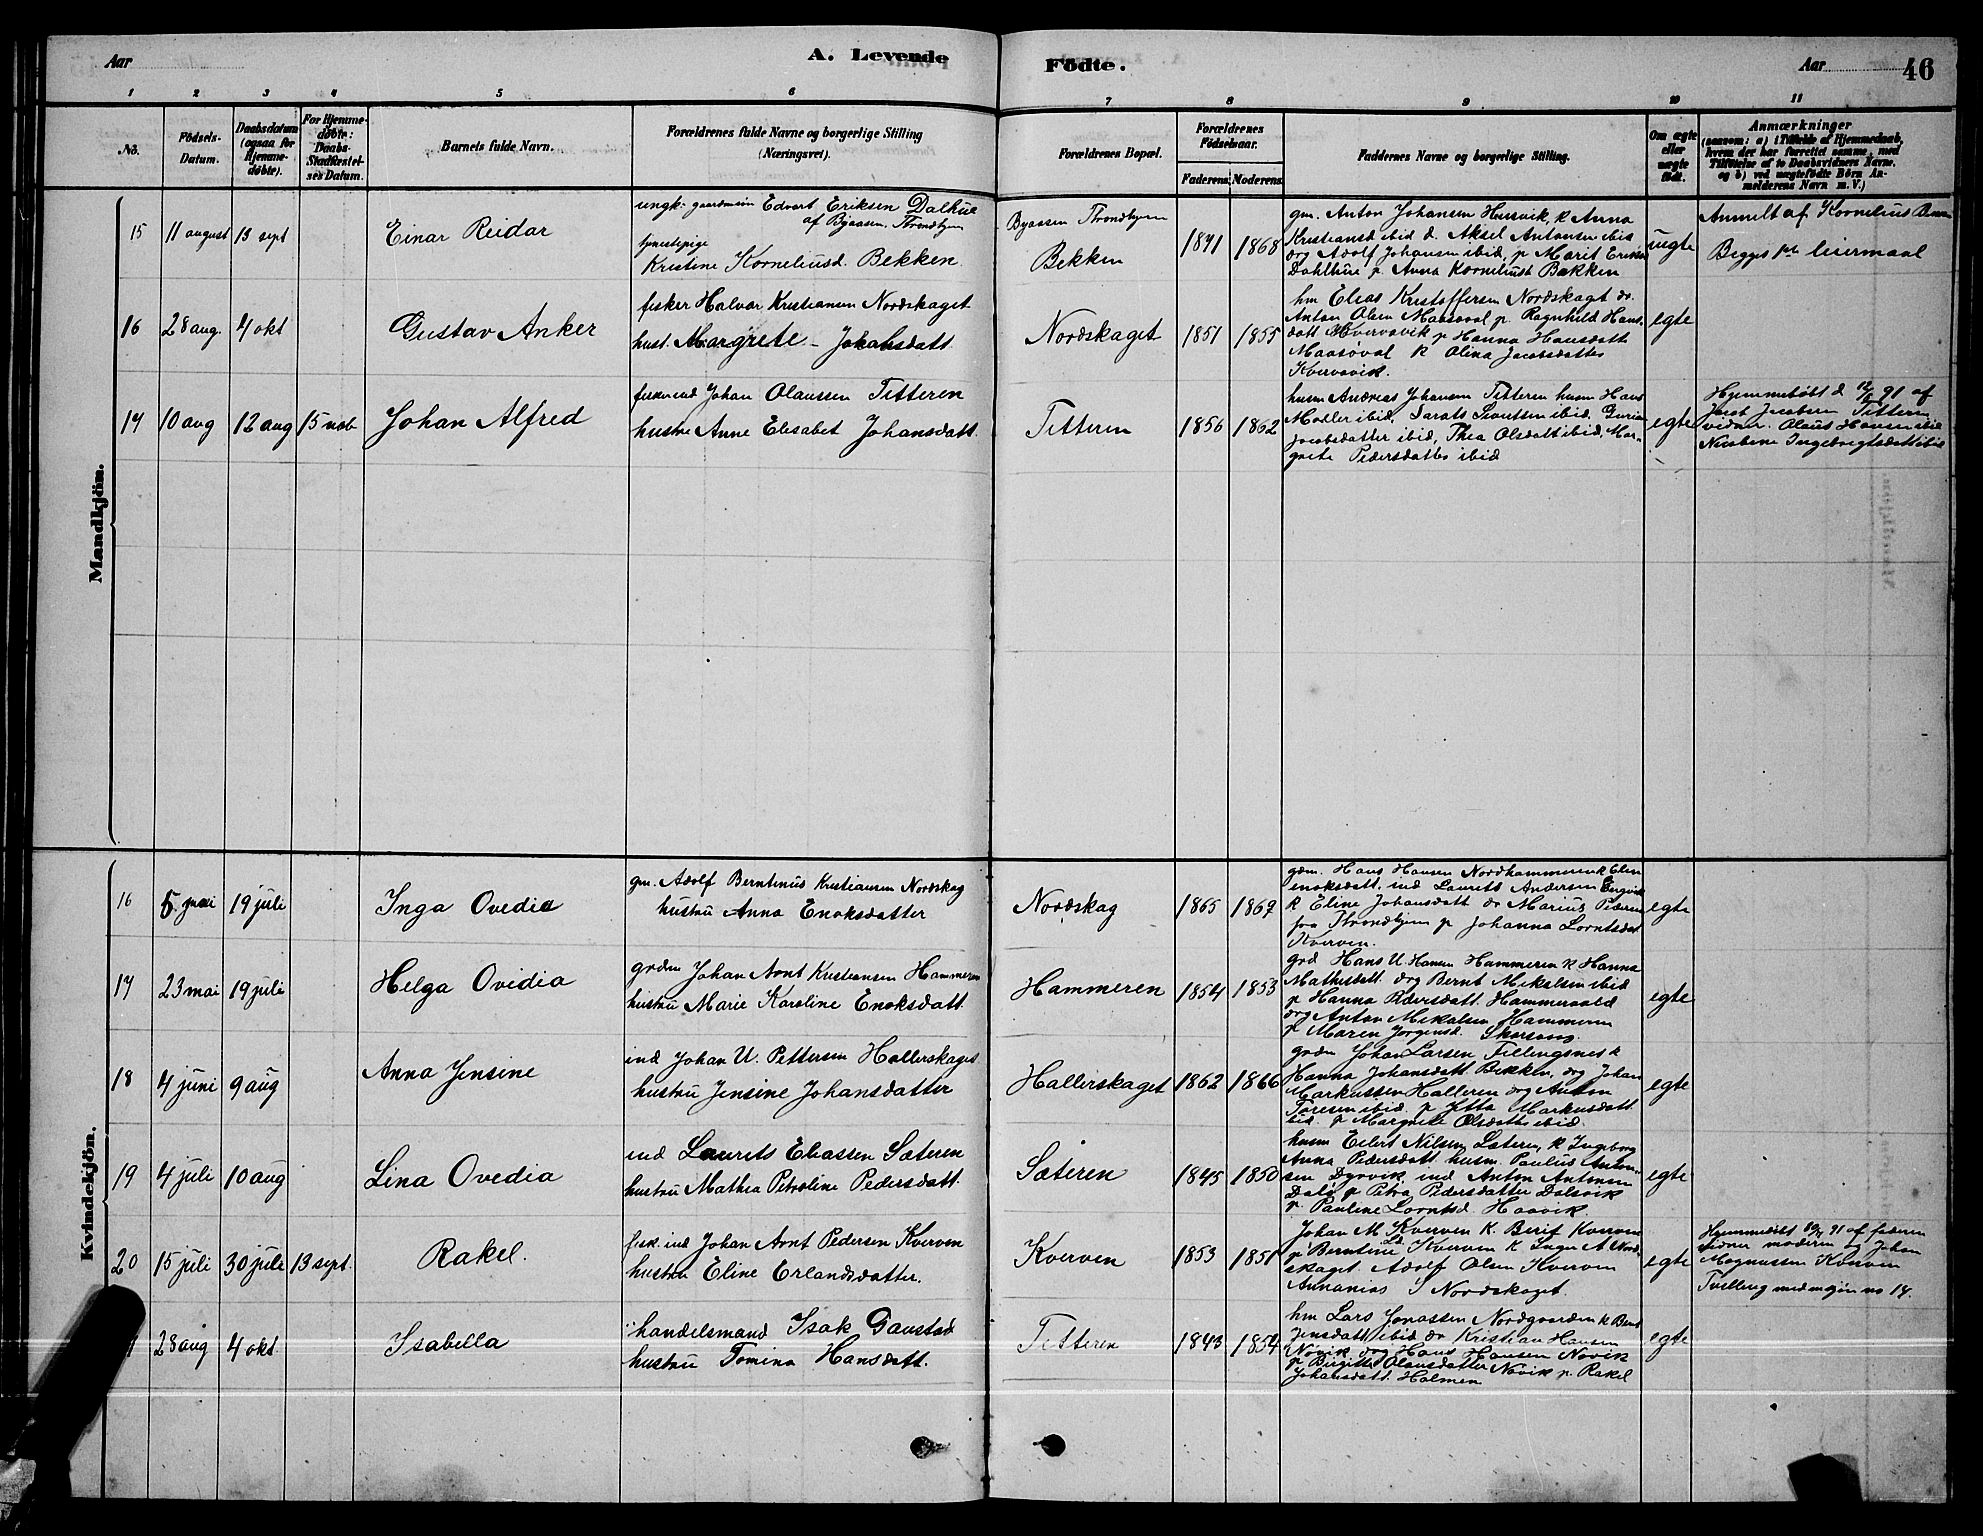 Aar
A. Levende
Fødte.
Aar
46
1 2 3 4 5 6 7 8 9 10 11
No.
Fødsels-
Datum.
Daabsdatum
(ogsaa for
Hjemme-
døbte).
For Hjemme-
døbte:
Daabs-
Stadfæstel-
ses Datum.
Barnets fulde Navn.
Forældrenes fulde Navne og borgerlige Stilling
(Næringsvei).
Forældrenes Bopæl.
Forældrenes
Fødselsaar.
Faderens. Moderens.
Faddernes Navne og borgerlige Stilling.
Om ægte
eller
uægte
født.
Anmærkninger
(saasom: a) i Tilfælde af Hjemmedaab,
hvem der har forrettet samme, med
Tilføielse af to Daabsvidners Navne,
og b) ved uægtefødte Børn An-
melderens Navn m. V.)
Mandkjön.
15
11 august
13 sept
Einar Reidar
ungk. gaardmein Edvart Eriksen Dalhue
af Byaasen, Throndhjem
tjenestepige
Kristine Korneliusd. Bekken.
Byaasen Throndhjem
Bekken
1871
1868
gm. Anton Johansen Husvik, k Anna
Kristiansd ibid d. Aksel Antonsen ibid
drg Adolf Johansen ibid, p Marit Eriksd
Dahlhue p Anna Korneliusd Bekken
uegte
Anmelt af Kornelius Bekken
Begges 1ste leiermaal
16
28 aug.
4 okt
Gustav Anker
fisker Halvor Kristiansen Nordskaget
hust. Margrete - Johansdatt
Nordskaget
1851
1855
hm Elias Kristoffersen Nordskaget dr.
Anton Olsen Maasøval p. Ragnhild Hans-
datt Kvervavik p Hanna Hansdatt
Maasøval k Olina Jacobsdatter
Kvervavik.
egte
17
10 aug
12 aug
15 nov
Johan Alfred
fisker ind Johan Olaussen Titteren
hustru Anne Elisabet Johansdatt.
Titteren
1856
1862
husm Andreas Johansen Titteren husm Hans
Moller ibid, Sarats Sivertsen ibid. Gurine
Jacobsdatter ibid, Thea Olsdatt ibid, Mar-
grete Pedersdatter ibid
egte
Hjemmedøbt d 12/8 91 af
Jacob Jacobsen Titteren
vidner. Olaus Hansen ibid
Ingebrigtsdatt ibid
Kvindekjön.
16
5 mai
19 juli
Inga Ovedia
gm. Adolf Berntinus Kristiansen Nordskag
hustru Anna Enoksdatter
Nordskag
1865
1867
gdm. Hans Hansen Nordhammeren k Elen
enoksdatt. ind Laurits Andersen Engvik
k Eline Johansdatt dr Marius Pedersen
fra Throndhjem p Johanna Lorntsdat
Kverven.
egte
17
23 mai
19 juli
Helga Ovidia
grdm Johan Arnt Kristiansen Hammeren
hustru Marie Karoline Enoksdatt.
Hammeren
1854
1853
grd Hans U. Hansen Hammeren k Hanna
Mathisdatt. drg Bernt Mikalsen ibid
p Hanna Pedersdatt. Hammervold
drg Anton Mikalsen Hammeren
p Maren Jørgensd.
egte
18
4 juni
9 aug
Anna Jensine
ind Johan U. Pettersen Hallerskaget
hustru Jensine Johansdatter
Hallerskaget
1862
1866
grdm Johan Larsen Fillingsnes k
Hanna Johansdatt Bekken, drg Johan
Markussen Halleren drg Anton
Toresen ibid. p Jetta Markusdatt
ibid. p Margrete Olsdatter ibid.
egte
19
4 juli
10 aug
Lina Ovedia
ind Laurits Eliassen Sæteren
hustru Mathea Petroline Pedersdatt.
Sæteren
1845
1850
husm Eilert Nilsen Sæteren, k Ingeborg
Anna Pedersdatt husm. Paulus Anton-
sen Dyrvik, ind Anton Antonsen
Dalø p Petra Pedersdatter Dalsvik
p. Pauline Lorntsd. Haavik.
egte
20
15 juli
30 juli
13 sept.
Rakel.
fisk. ind Johan Arnt Pedersen Kverven
hustru Eline Erlandsdatter.
Kverven
1853
1851
Johan M. Kverven k. Berit Kverven
p Berntine Kverven k Inger A Nord-
skaget. Adolf Olsen Kverven
Annanias J Nordskaget.
egte
Hjemmedøbt af faderen
vidner moderen og Johan
Magnussen Kverven
Tvilling med mkjøn no 14.
28 aug
4 okt.
Isabella
handelsmand Isak Gaustad
hustru Tomina Hansdatt.
Titteren
1843
1854
hm Lars Jonassen Nordgaarden k Berit
Jensdatt ibid dr Kristian Hansen
Nøvik drg Hans Hansen Nøvik
p Birgitte Olausdatter Nøvik p. Rakel
Johansdatt. Holmen
egte